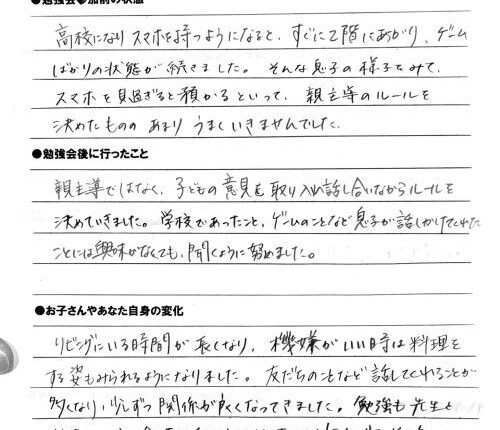 ●勉強会参加前の状態
高校になりスマホを持つようになると、すぐに2階にあがり、ゲーム
ばかりの状態が続きました。そんな息子の様子をみて、
スマホを見過ぎると預かるといって、親主導のルールを
決めたもののあまりうまくいきませんでした。
●勉強会後に行ったこと
親主導ではなく、子どもの意見も取り入れ話し合いながらルールを
決めていきました。学校であったこと、ゲームのことなど息子が話しかけてくれた
ことには興味がなくても、聞くように努めました。
●お子さんやあなた自身の変化
リビングにいる時間が長くなり、機嫌がいい時は料理を
する姿もみられるようになりました。友だちのことなど話してくれることが
多くなり、少しずつ関係が良くなってきました。勉強も先生と